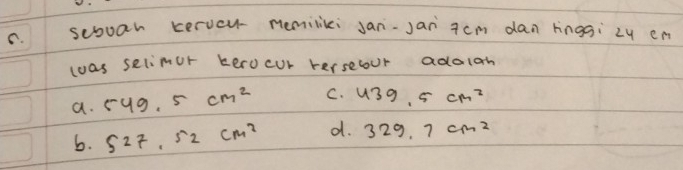 5. sebuah kerucut memiliki jari-jari 7cm dan tinggi 24 cm
luas selimut kerucut tersebut adalah
a. 549,5 cm² c. 439,5 cm²
b. 527,52 cm² d. 329,7 cm²